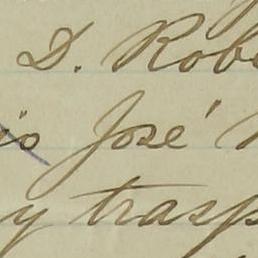 D. Rob
io José
y trasp